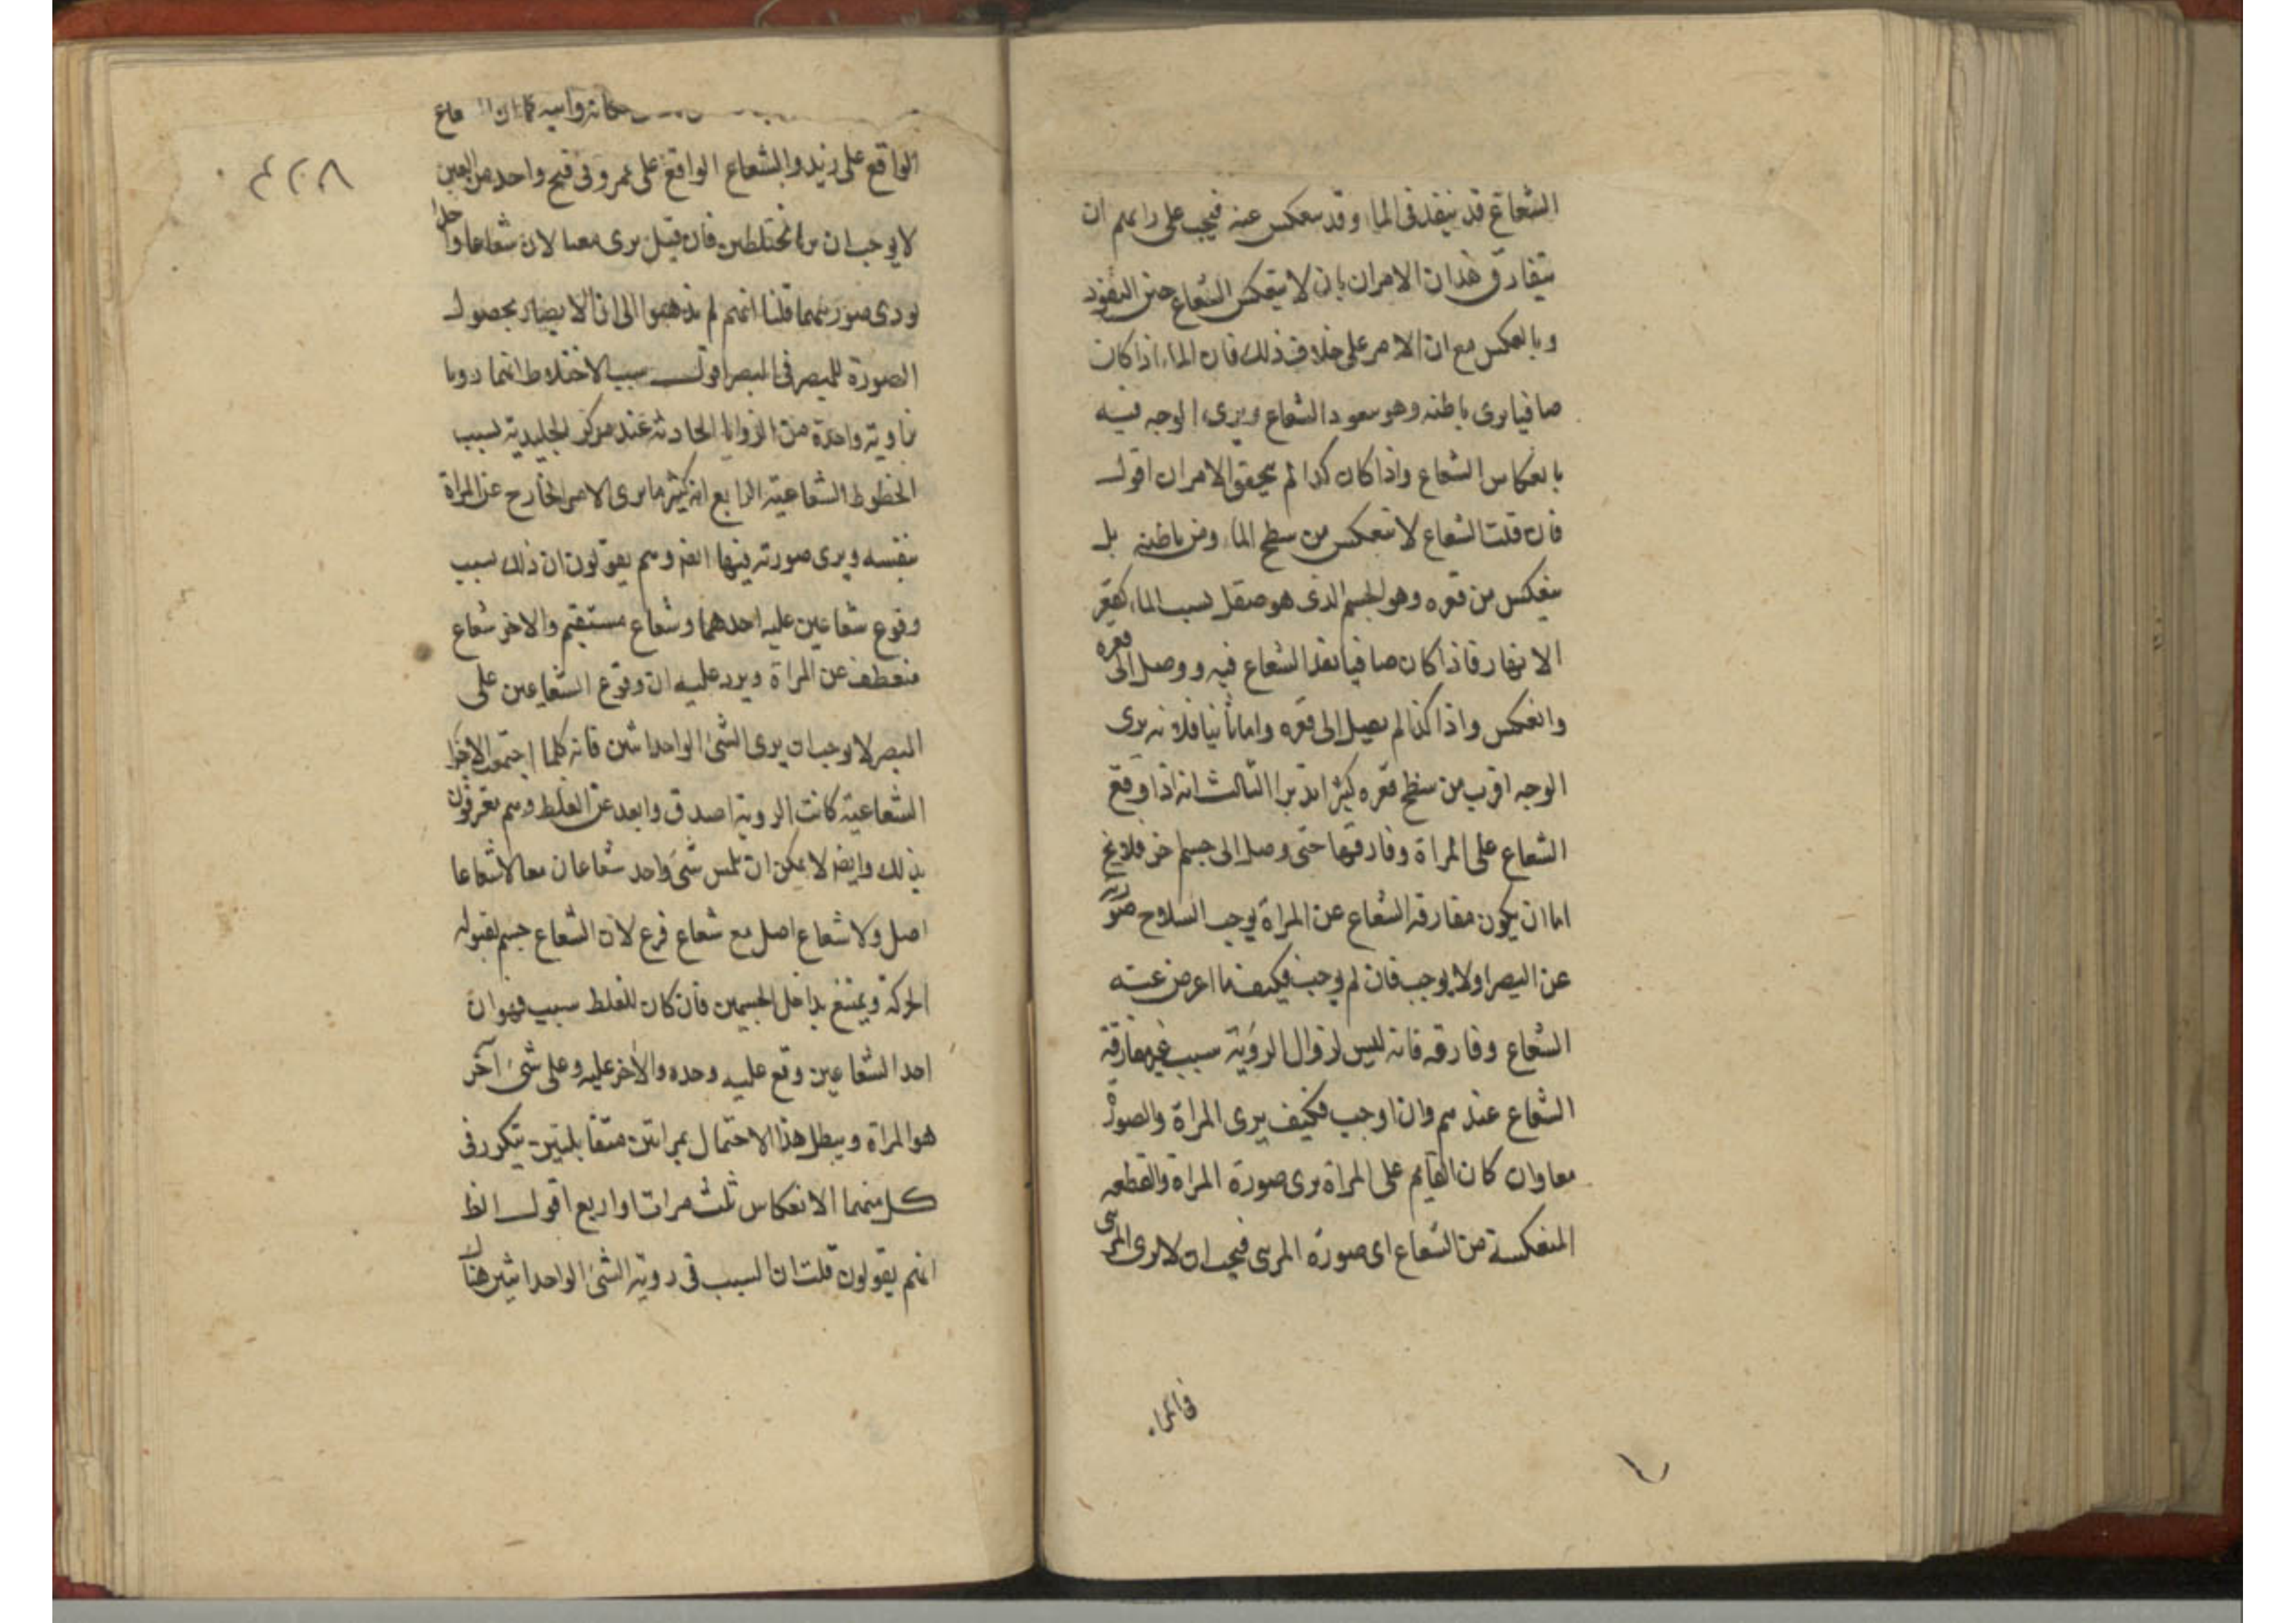 الشعاع قد ينفذ فى الماء وقد ينعكس عنه فيجب على رايهم ان
يتفارق هذان الامران بان لا ينعكس الشعاع حين النفوذ
وبالعكس مع ان الامر على خلاف ذلك فان الماء اذا كان
صافيا يرى باطنه وهو بنفوذ الشعاع ويرى الوجه فيه
بانعكاس الشعاع واذا كان كدرا لم يتحقق الامران اقول
فان قلت الشعاع لا ينعكس من سطح الماء ومن باطنه بل
ينعكس من قعره وهو الجسم الذى هو صقل بسبب الماء كقعر
الانهار فاذا كان صافيا نفذ الشعاع فيه ووصل الى قعره
وانعكس واذا كدر لم يصل الى قعره واما ثانيا فلانه يرى
الوجه اقرب من سطح قعره كثيرا تدبر الثالث انه اذا وقع
الشعاع على المراة وفارقها حتى وصل الى جسم اخر فلا يخ
اما ان يكون مفارقة الشعاع عن المراة يوجب انسلاخ صورته
عن البصر اولا يوجب فان لم يوجب فكيف ما اعرض عنه
الشعاع وفارقه فانه ليس لزوال الروية سبب غير مفارقة
الشعاع عندهم وان اوجب فكيف يرى المراة والصورة
معا وان كان القايم على المراة يرى صورة المراة والقطعه
المنعكسة من الشعاع اى صورة المرىى فيجب ان لا يرى المرىى
فانكرا
الواقع على زيد والشعاع الواقع على عمرو فى فتح واحد من العين
لا يوجب ان يرا مختلطين فان قيل يرى معا لان شعاعا واحدا
يودى صورتهما قلنا انهم لم يذهبوا الى ان الابصار بحصول
الصورة للمبصر فى المبصر اقول سبب الاختلاط انهما رويا
بزاوية واحدة من الزوايا الحادثة عند مركز الجليدية بسبب
الخطوط الشعاعية الرابع انه كثيرا ما يرى الامر الخارج عن المراة
بنفسه ويرى صورته فيها ايضا وهم يقولون ان ذلك بسبب
وقوع شعاعين عليه احدهما وشعاع مستقيم والاخر شعاع
منعطف عن المراة ويرد عليه ان وقوع الشعاعين على
المبصر لا يوجب ان يرى الشئ الواحد اثنين فانه كلما اجتمعت الاجزا
الشعاعية كانت الروية اصدق وابعد عن الغلط وهم معترفون
بذلك وايضا لا يمكن ان تلمس شئ واحد شعاعان معا لا شعاعا
اصل ولا شعاع اصل مع شعاع فرع لان الشعاع جسم لقبوله
الحركة ويمتنع تداخل الجسمين فان كان للغلط سبب فهو ان
احد الشعاعين وقع عليه وحده والاخر عليه وعلى شئ آخر
هو المراة ويبطل هذا الاحتمال بمراتين متقابلتين يتكرر فى
كل منهما الانعكاس ثلث مرات او اربع اقول الظ
انهم يقولون قلت ان السبب فى روية الشئ الواحد اثنين هنا